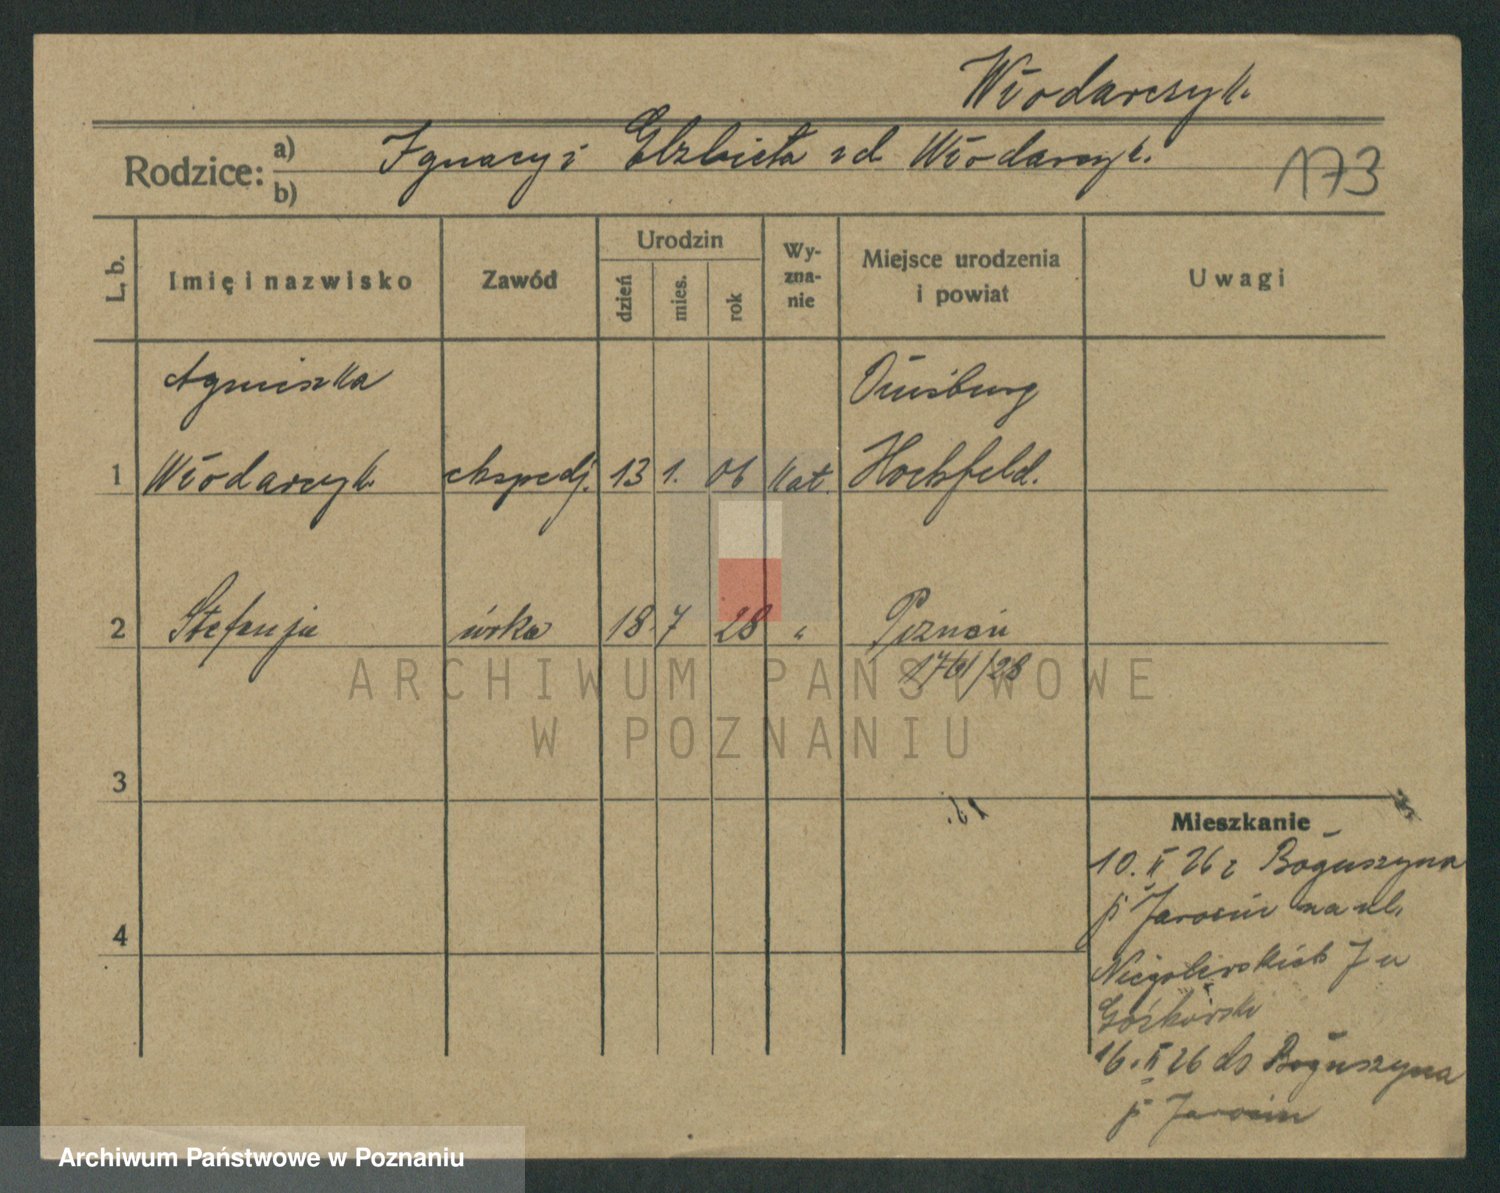 Włodarczyk.
Rodzice: a) Ignacy i Elżbieta zd Włodarczyk.
b)
173
L. b.
Imię i nazwisko
Zawód
Urodzin
dzień
mies.
rok
Wy-
zna-
nie
Miejsce urodzenia
i powiat
Uwagi
Agnieszka
Duisburg
1 Włodarczyk. ekspedj. 13 1. 06 kat. Hochfeld.
2 Stefanja córka 18. 7 28 " Poznań
/28
3
4
Mieszkanie
10. II 26 z Boguszyna
p Jarocin na ul.
Niegolewskich 7 u
16. II 26 do Boguszyna
p Jarocin
ARCHIWUM PAŃSTWOWE
W POZNANIU
Archiwum Państwowe w Poznaniu